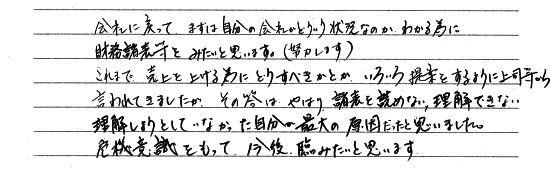 会社に戻って、まずは自分の会社がどういう状況なのか、わかる為に
財務諸表等をみたいと思います。(努力します)
これまで、売上を上げる為にどうすべきかとか、いろいろ提案をするように上司等から
言われてきましたが、その答は、やはり、諸表を読めない、理解できない
理解しようとしていなかった自分が最大の原因だったと思いました。
危機意識をもって、今後、臨みたいと思います